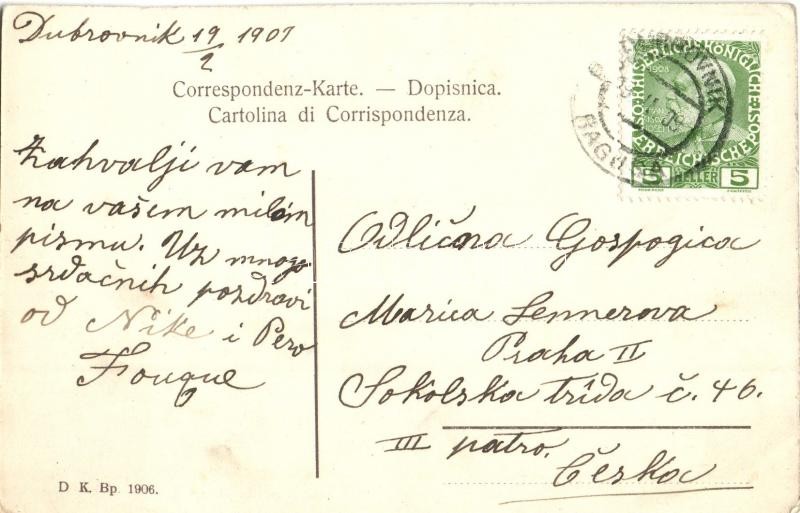 Dubrovnik 19/2 1907
Correspondenz-Karte. — Dopisnica.
Cartolina di Corrispondenza.
Zahvalji vam
na vašem milom
pismu. Uz mnogo
srdačnih pozdravi
od Nike i Pero
Fouque
D K. Bp 1906.
1908
KÖNIGLICHE
ÖSTERREICHISCHE
5 HELLER 5
DUBROVNIK
RAGUSA
Odlična Gospogica
Marica Sennerova
Praha II
Sokolska třída č. 46.
III patro.
Česka